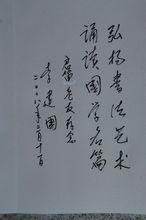 弘扬书法艺术
诵读国学名篇
李建国
二〇一八年二月十一日